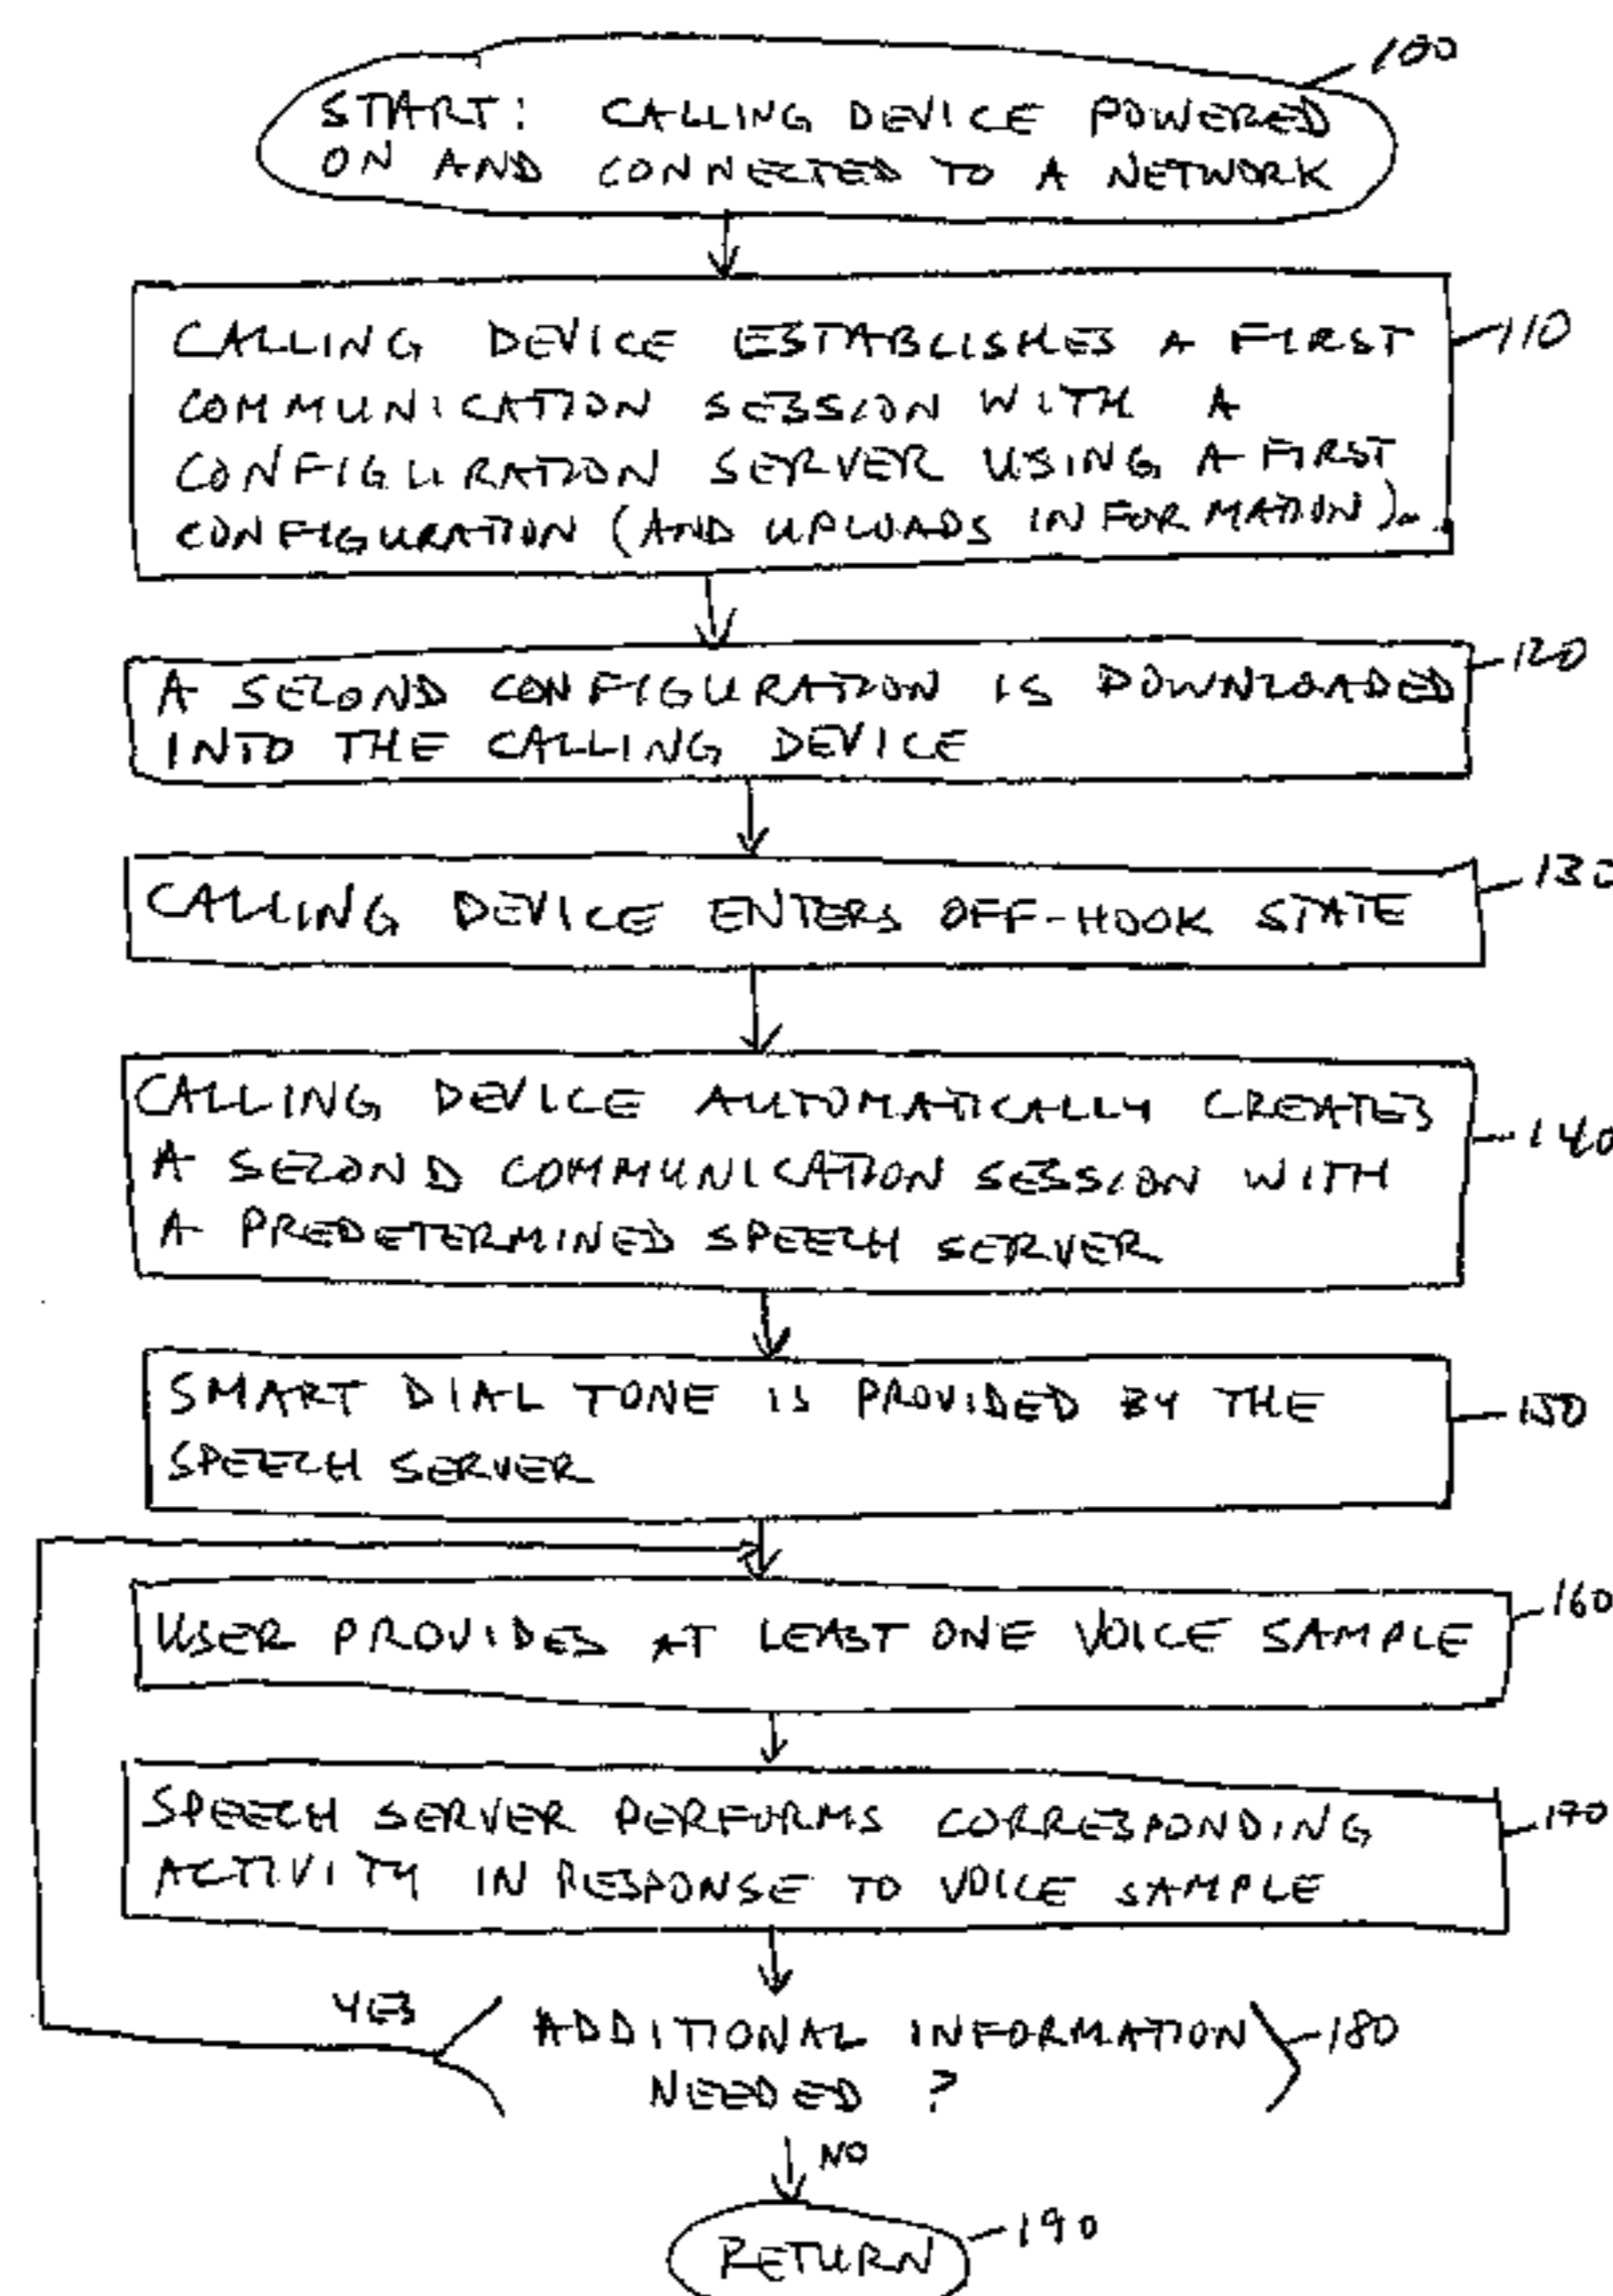 100
START: CALLING DEVICE POWERED
ON AND CONNECTED TO A NETWORK
CALLING DEVICE ESTABLISHES A FIRST
110
COMMUNICATION SESSION WITH A
CONFIGURATION SERVER USING A FIRST
CONFIGURATION (AND UPLOADS INFORMATION)...
120
A SECOND CONFIGURATION IS DOWNLOADED
INTO THE CALLING DEVICE
130
CALLING DEVICE ENTERS OFF-HOOK STATE
CALLING DEVICE AUTOMATICALLY CREATES
140
A SECOND COMMUNICATION SESSION WITH
A PREDETERMINED SPEECH SERVER
SMART DIAL TONE IS PROVIDED BY THE
150
SPEECH SERVER
160
USER PROVIDES AT LEAST ONE VOICE SAMPLE
SPEECH SERVER PERFORMS CORRESPONDING
170
ACTIVITY IN RESPONSE TO VOICE SAMPLE
YES
ADDITIONAL INFORMATION
180
NEEDED ?
NO
190
RETURN